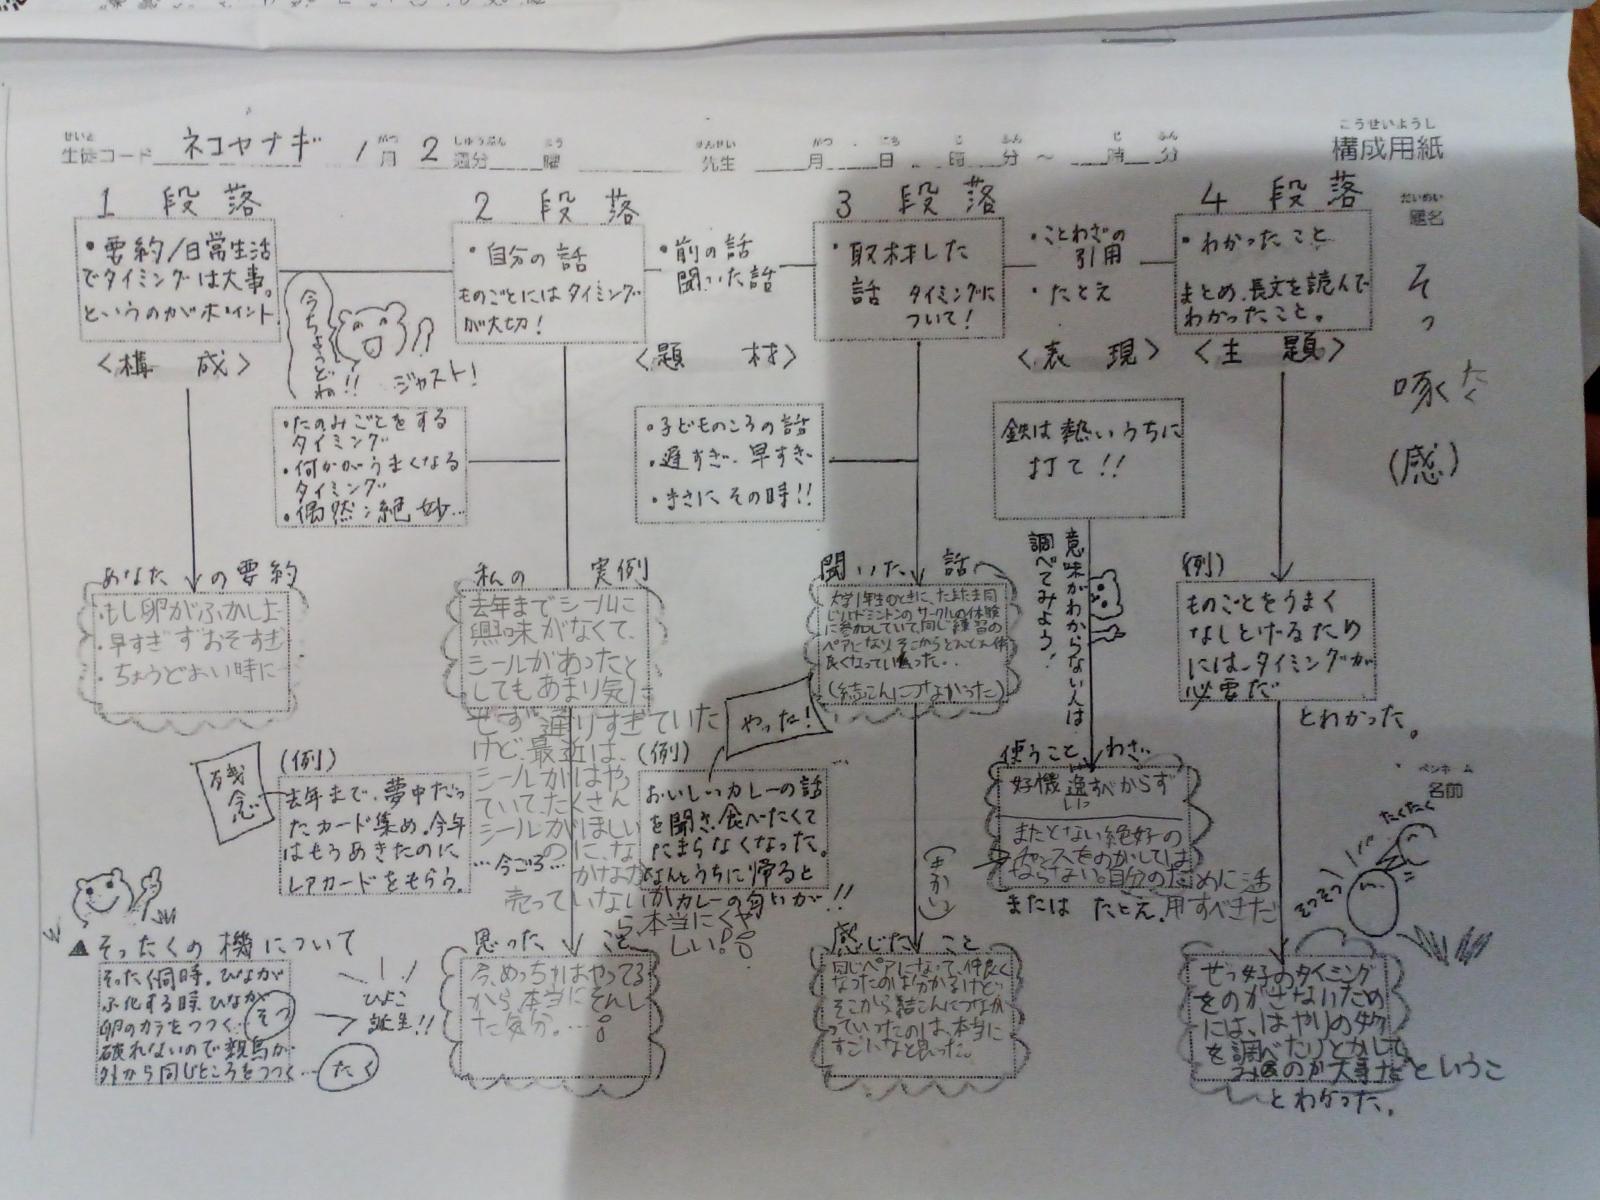 こうせいようし
構成用紙
せいと
生徒コード ネコヤナギ 1月 2週分 曜 先生 月 日 時 分 〜 時 分
だいめい
題名
そっ啄
たく
(感)
ペンネーム
名前
1 段落
・要約/日常生活
でタイミングは大事。
というのがポイント
<構成>
今ちょうどね!!
ジャスト!
2 段落
・自分の話
ものごとにはタイミング
が大切!
・前の話
聞いた話
<題材>
3 段落
・取材した
話 タイミングに
ついて!
・ことわざの
引用
・たとえ
<表現>
4 段落
・わかったこと
まとめ、長文を読んで
わかったこと。
<主題>
・たのみごとをする
タイミング
・何かがうまくなる
タイミング
・偶然:絶妙…
・子どものころの話
・遅すぎ、早すぎ
・まさにその時!!
鉄は熱いうちに
打て!!
意味がわからない人は
調べてみよう!
あなたの要約
・もし卵がふかしよ
・早すぎずおそすぎ
・ちょうどよい時に
私の 実例
去年までシールに
興味がなくて、
シールがあったと
してもあまり気に
せず通りすぎていた
けど、最近は、
シールがはやっ
ていて、たくさん
シールがほしい
のに、な
かなか
売っていないか
ら、本当にくや
しい。
聞いた 話
大学1年生のときに、たまたま同
じバドミントンのサークルの体験
に参加していて、同じ練習の
ペアになり、そこからどんどん仲
良くなっていった..
(結こんにつながった)
(例)
ものごとをうまく
なしとげるため
には、タイミングが
必要だ
とわかった。
残念
(例)
去年まで、夢中だっ
たカード集め。今年
はもうあきたのに
レアカードをもらう。
…今ごろ…
やった!
(例)
おいしいカレーの話
を聞き、食べたくて
たまらなくなった。
なんとうちに帰ると
カレーの匂いが!!
使うことわざ
好機逸すべからず
いっ
またとない絶好の
チャンスをのがしては
ならない。自分のために活
用すべきだ
または たとえ
▲そったくの機について
そったく同時。ひなが
ふ化する時、ひなが
卵のカラをつつく…そつ
破れないので親鳥が
外から同じところをつつく…たく
ひよこ
誕生!!
思った こと
今、めっちゃはやってる
から、本当にそんし
た気分。…
感じた こと
同じペアになって、仲良く
なったのは分かるけど、
そこから結こんにつなが
っていったのは、本当に
すごいなと思った。
たくたく
そつそつ
ぜっ好のタイミング
をのがさないため
には、はやりの物
を調べたりとかして
みるのが大事だというこ
とわかった。